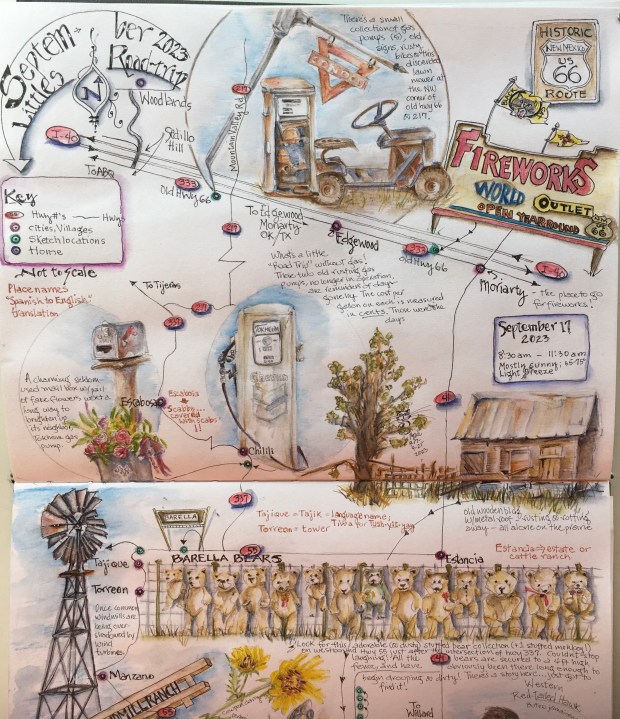 September 2023
Little Road-trip
N
Woodlands
Sedillo
Hill
I-40
To ABQ
Old Hwy 66
333
217
Mountain Valley Rd
There's a small
collection of gas
pumps (5), old
signs, rusty
bikes & this
discarded
lawn
mower at
the NW
corner of
old hwy 66
& 217.
HISTORIC
NEW MEXICO
US
66
ROUTE
FIREWORKS
WORLD
OUTLET
OPEN YEAR ROUND
66
Key
Hwy #'s
Hwys
cities, Villages
Sketch locations
Home
Not to scale
Place names
"Spanish to English"
translation
To Edgewood
Moriarty
OK/TX
Edgewood
333
Old Hwy 66
I-40
Moriarty
the place to go
for fireworks!
What's a little
"Road Trip" without gas!
These two old rusting gas
pumps, no longer in operation,
are reminders of days
gone by. The cost per
gallon on each is measured
in cents. Those were the
days
To Tijeras
337
September 17
2023
8:30am - 11:30am
Mostly sunny; 65-75°
Light breeze
A charming, seldom-
used mail box w/ pail
of fake flowers went a
long way to
brighten up
its neighbor,
gas
pump.
Escabosa
Escabosa
Scabby...
covered
with scabs
!!
Chilili
41
old wooden bldg
w/metal roof - rusting & rotting
away - all alone on the prairie
337
Tajique = Tajik = language name;
Torreon = tower
BARELLA
55
BARELLA BEARS
Estancia
Estancia = estate or
cattle ranch
Tajique
Torreon
Once common
windmills are
being over
shadowed by
wind
turbines.
Manzano
55
WINDMILL RANCH
Look for this adorable (so dusty) stuffed bear collection (+1 stuffed monkey)
on westbound Hwy 55 just after the intersection of Hwy 337. Couldn't stop
laughing! All the bears are secured to a 4 ft high
fence, and have obviously been there long enough to
begin drooping & so dirty! There's a story here... just got to
find it!
41
To Willard
Western
Red-Tailed Hawk